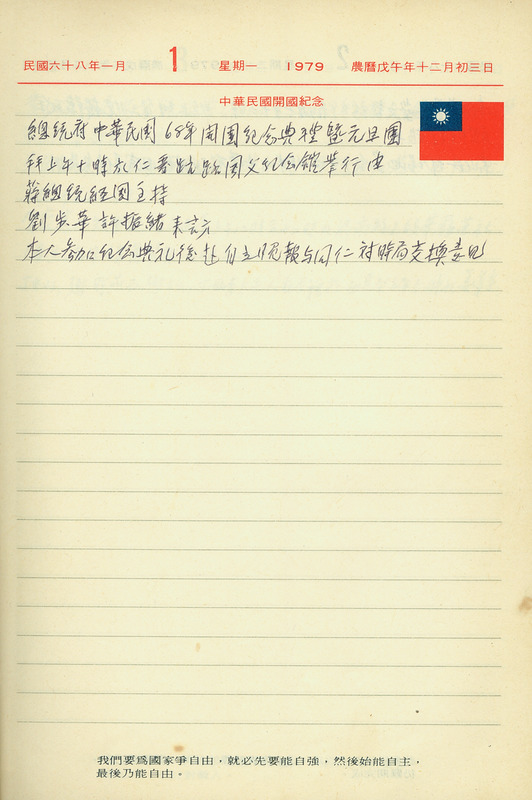 民國六十八年一月 1 星期一 1979 農曆戊午年十二月初三日
中華民國開國紀念
總統府中華民國68年開國紀念典禮暨元旦團
拜上午十時於仁愛路國父紀念館舉行由
蔣總統經國主持
劉 華許 緒來訪
本人參加紀念典禮後赴自立晚報与同仁対時局交換意見
我們要爲國家爭自由，就必先要能自強，然後始能自主，
最後乃能自由。